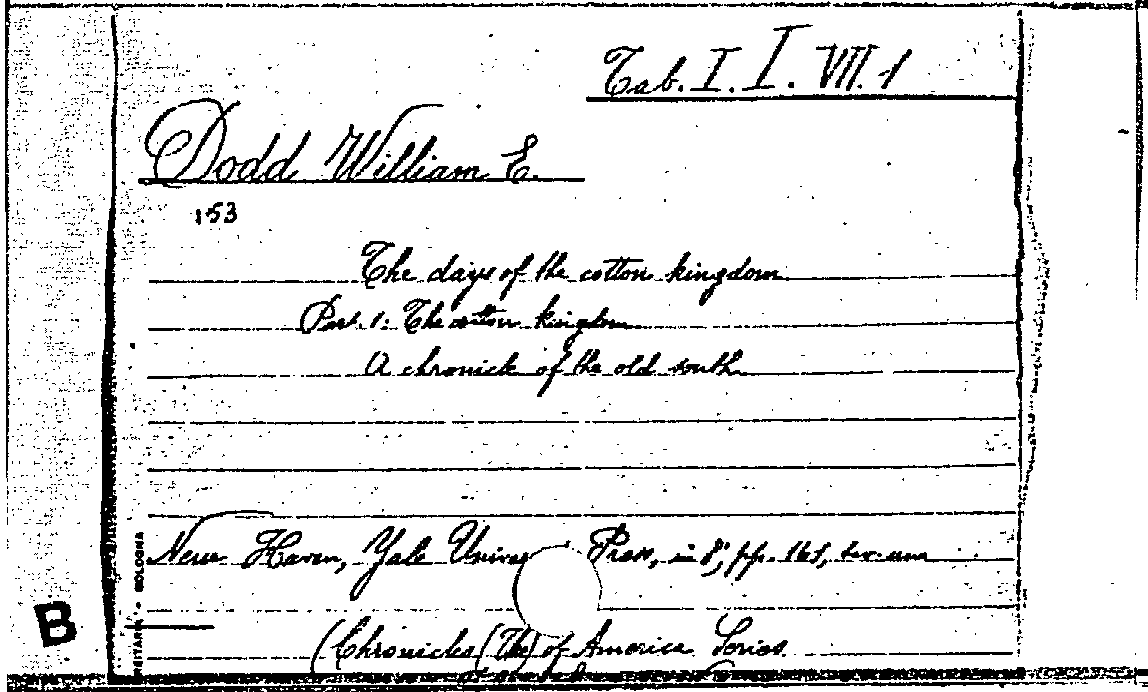 Tab. I. I. VII. 1
Dodd William E.
153
The days of the cotton kingdom
Part. 1: The cotton kingdom
A chronicle of the old south
New Haven, Yale Press, in 8°, pp. 161,
(Chronicles (The) of America Series
B
BOLOGNA